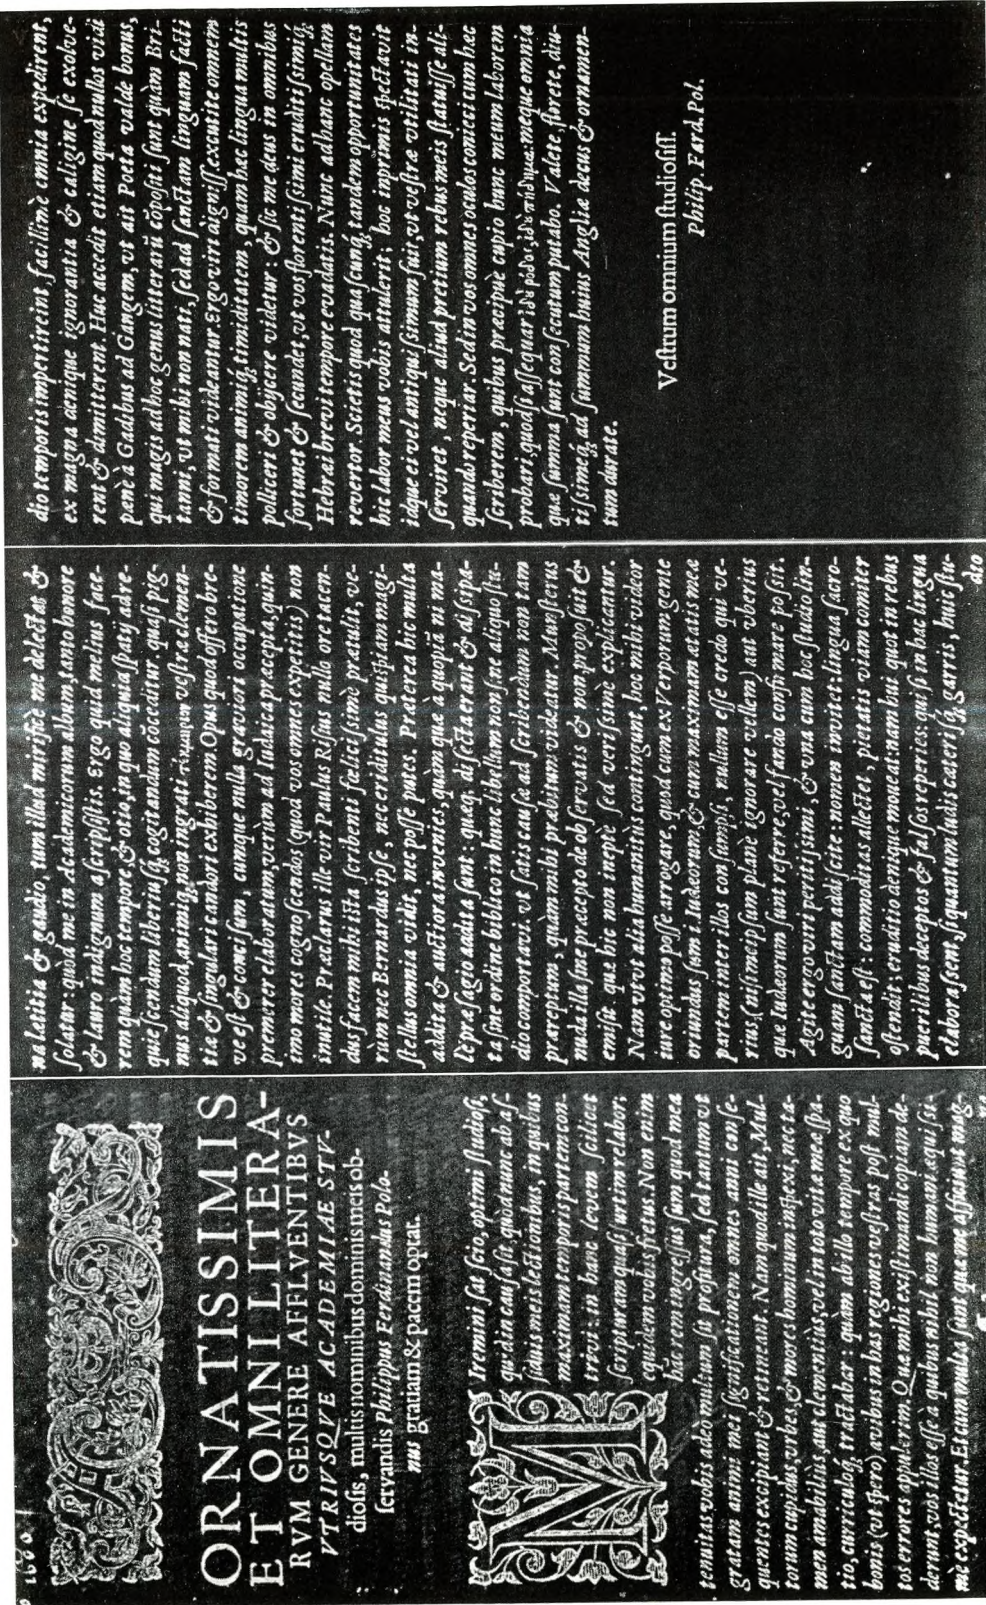 ORNATISSIMIS
ET OMNI LITERA-
RVM GENERE AFFLVENTIBVS
VTRIVSQVE ACADEMIAE STV-
diosis, multis nominibus dominis meis ob-
servandis Philippus Ferdinandus Polo-
nus gratiam & pacem optat.
Mremini sat scio, optimi studiosi,
qui die cuiusque, quòd nunc ab as-
siduis meis lectionibus, in quibus
maximam temporis partem con-
trivi: in hanc levem scilicet
scripturam quasi furtim relabor,
equidem vobis fretus. Non enim
hác rem ingressus sum quod mea
tenuitas vobis adeo multum sit profutura, sed tantum ut
gratam animi mei significationem omnes aut conse-
quentes excipiant & retineant. Nam quod ille ait, Mul-
torum cupidus, urbes, & mores hominum inspexi, nec ta-
men amabiliùs, aut clementiùs, vel in toto vitæ meæ spa-
tio, curriculoq́, trictabar: quàm ab illo tempore ex quo
bonis (ut spero) avibus in has regiones vestras post mul-
tos errores appulerim. Quæ mihi existimandi copiam de-
derunt, vos illos esse à quibus nihil non humani, aqui sit-
ne expectetur. Et cum multa sunt quæ me afficiunt mag-
na lætitia & gaudio, tum illud mirificè me delectas &
solatur: quod me in Academicorum album tanto honore
& lauro magnum adscripsistis. Ergo quid melius face-
rem quàm hoc tempore, & otio, in quo aliquid ipsasi adre-
quiescendum liberiusq́, cogitandum cocceditur, quasi pig-
nus aliquod, animiq́, non ingrati vestræ clemen-
tiæ & singulari candori exhiberem. Opus quidem offero bre-
ve est & concisum, eamque nulla graviori occupatione
permoror elaboratum, verùm ad Iudaica præcepta, quin-
imo mores cognoscendos (quod vos omnes expetitis) non
inutile. Præclarus ille vir Paulus Risius nullo ore tacen-
dus facem mihi ista scribenti felicissimè prætulit, ve-
rùm nec Bernardus ipse, nec eruditulus quispiam magi-
stellus omnia vidit, nec posse putes. Præterea hic multa
addita & auctiora invenies, quàm quæ à quopiã in ma-
tæ sine ordine biblico in hunc libellum non sine aliquo stu-
dio comportavi. ut satis causa ad scribendum non tam
præreptum, quàm mihi præbitum videatur. Munsterus
nuda illa sine præcepto de observatis & non, proposuit &
emisit quæ hic non ineptè sed verissimè explicantur.
Nam ut ut alia humaniùs contingunt, hoc mihi videor
iure optimo posse arrogare, quod cum ex Verporum gente
oriundus sum i. Iudæorum, & cum maximam ætatis meæ
partem inter illos consumpsi, nullum esse credo qui ve-
rius, (nisi me ipsum planè ignorare vellem) aut uberius
quæ Iudæorum sunt referre, vel suado confirmare possit.
Agite ergo viri peritissimi, & una cum hoc studio lin-
guam sanctam addiscite: nomen invitet: lingua sacro-
sancta est: commoditas allectet, pietatis viam comiter
ostendit: eruditio denique moveat: nam hui quot in rebus
puerilibus deceptos & falsos reperies: qui si in hac lingua
elaborassent, si quantum ludis cæterisq́, garris, huic stu-
dio
dio temporis impertirent facillimè omnia expedirent,
ex magna acumque ignorantia & caligine se exolve-
rent & dimitterent. Huc accedit etiam quod nullus vidit
penè à Gadibus ad Gangem, ut ait Poeta valde bonus,
qui magis ad hoc genus litteraru cõpositi sunt quàm Bri-
tanni, ut mihi non nati, sed ad sanctam linguam facti
& formati videantur. Ergo viri dignissi. excutite omnem
timorem animiq́, timiditatem, quum hæc lingua multis
polliceri & obijcere videtur: & sic me deus in omnibus
fortunet & secundet, ut vos florentissimi eruditissimiq́
Hebræi brevi tempore evadatis. Nunc ad hanc opellam
revertor. Scietis quod quascúnq, tandem opportunitates
hic labor meus vobis attulerit; hoc inprimis spectavit
idque ei vel antiquissimum fuit, ut vestræ utilitati in-
serviret, neque aliud pretium rebus meis statuisse ali-
quando reperiar. Sed in vos omnes oculos conieci cum hæc
scriberem, quibus præcipuè cupio hunc meum laborem
probari, quod si assequar meque omnia
quæ summa sunt consecutum putabo. Valete, florete, diu-
tissimeq́, ad summum huius Angliæ decus & ornamen-
tum durate.
Vestrum omnium studiosiss.
Philip. Ferd. Pol.